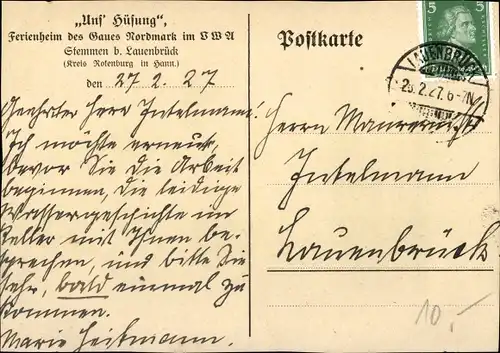 „Uns' Hüsung",
Ferienheim des Gaues Nordmark im V W A
Stemmen b. Lauenbrück
(Kreis Rotenburg in Hann.)
den 27. 2. 27
Geehrter Herr Intelmann!
Ich möchte erneut,
bevor Sie die Arbeit
beginnen, die leidige
Wassergeschichte im
Keller mit Ihnen be-
sprechen, und bitte Sie
sehr, bald einmal zu
kommen.
Marie Heitmann.
Postkarte
5 5
LAUENBRÜCK
28.2.27. 6-7N
Herrn Maurermstr.
Intelmann
Lauenbrück
10.-